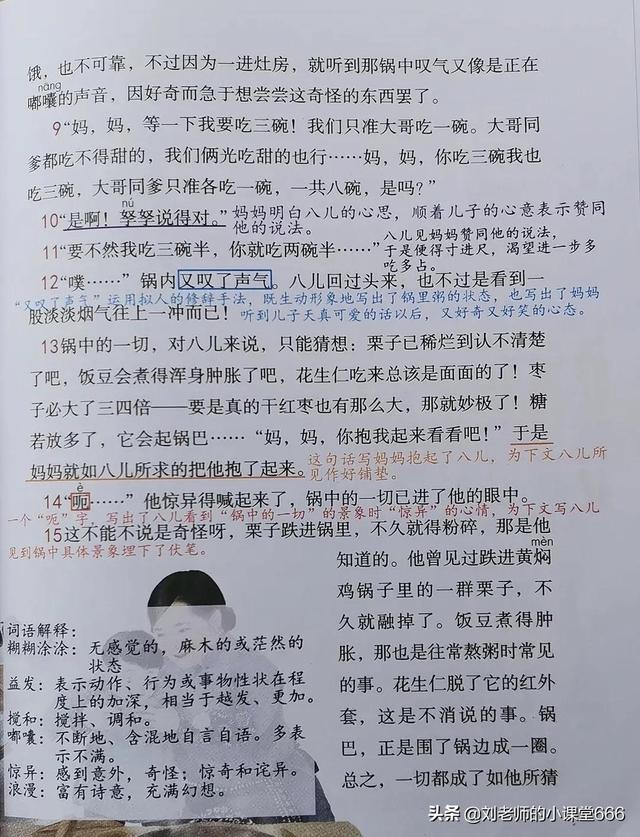 饿，也不可靠，不过因为一进灶房，就听到那锅中叹气又像是正在
nāng
嘟囔的声音，因好奇而急于想尝尝这奇怪的东西罢了。
9“妈，妈，等一下我要吃三碗！我们只准大哥吃一碗。大哥同
爹都吃不得甜的，我们俩光吃甜的也行……妈，妈，你吃三碗我也
吃三碗，大哥同爹只准各吃一碗，一共八碗，是吗？”
nú
10“是啊！孥孥说得对。”妈妈明白八儿的心思，顺着儿子的心意表示赞同
他的说法。
11“要不然我吃三碗半，你就吃两碗半……”
八儿见妈妈赞同他的说法，
于是便得寸进尺，渴望进一步多
吃多占。
12“噗……”锅内又叹了声气。八儿回过头来，也不过是看到一
“又叹了声气”运用拟人的修辞手法，既生动形象地写出了锅里粥的状态，也写出了妈妈
股淡淡烟气往上一冲而已！
听到儿子天真可爱的话以后，又好奇又好笑的心态。
13锅中的一切，对八儿来说，只能猜想：栗子已稀烂到认不清楚
了吧，饭豆会煮得浑身肿胀了吧，花生仁吃来总该是面面的了！枣
子必大了三四倍——要是真的干红枣也有那么大，那就妙极了！糖
若放多了，它会起锅巴……“妈，妈，你抱我起来看看吧！”于是
妈妈就如八儿所求的把他抱了起来。
这句话写妈妈抱起了八儿，为下文八儿所
见作好铺垫。
è
14“呃……”他惊异得喊起来了，锅中的一切已进了他的眼中。
一个“呃”字，写出了八儿看到“锅中的一切”的景象时“惊异”的心情，为下文写八儿
15这不能不说是奇怪呀，栗子跌进锅里，不久就得粉碎，那是他
见到锅中具体景象埋下了伏笔。
mèn
知道的。他曾见过跌进黄焖
鸡锅子里的一群栗子，不
久就融掉了。饭豆煮得肿
胀，那也是往常熬粥时常见
的事。花生仁脱了它的红外
套，这是不消说的事。锅
巴，正是围了锅边成一圈。
总之，一切都成了如他所猜
词语解释：
糊糊涂涂：无感觉的，麻木的或茫然的
状态
益发：表示动作、行为或事物性状在程
度上的加深，相当于越发、更加。
搅和：搅拌、调和。
嘟囔：不断地、含混地自言自语。多表
示不满。
惊异：感到意外，奇怪；惊奇和诧异。
浪漫：富有诗意，充满幻想。
头条 @刘老师的小课堂666